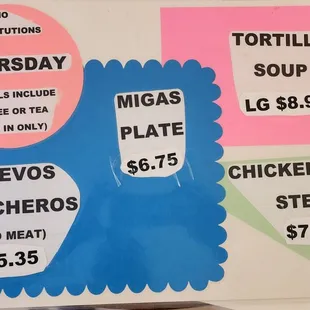 NO
TUTIONS
RSDAY
LS INCLUDE
EE OR TEA
IN ONLY)
MIGAS
PLATE
$6.75
TORTILL
SOUP
LG $8.9
EVOS
CHEROS
O MEAT)
5.35
CHICKEN
STE
$7